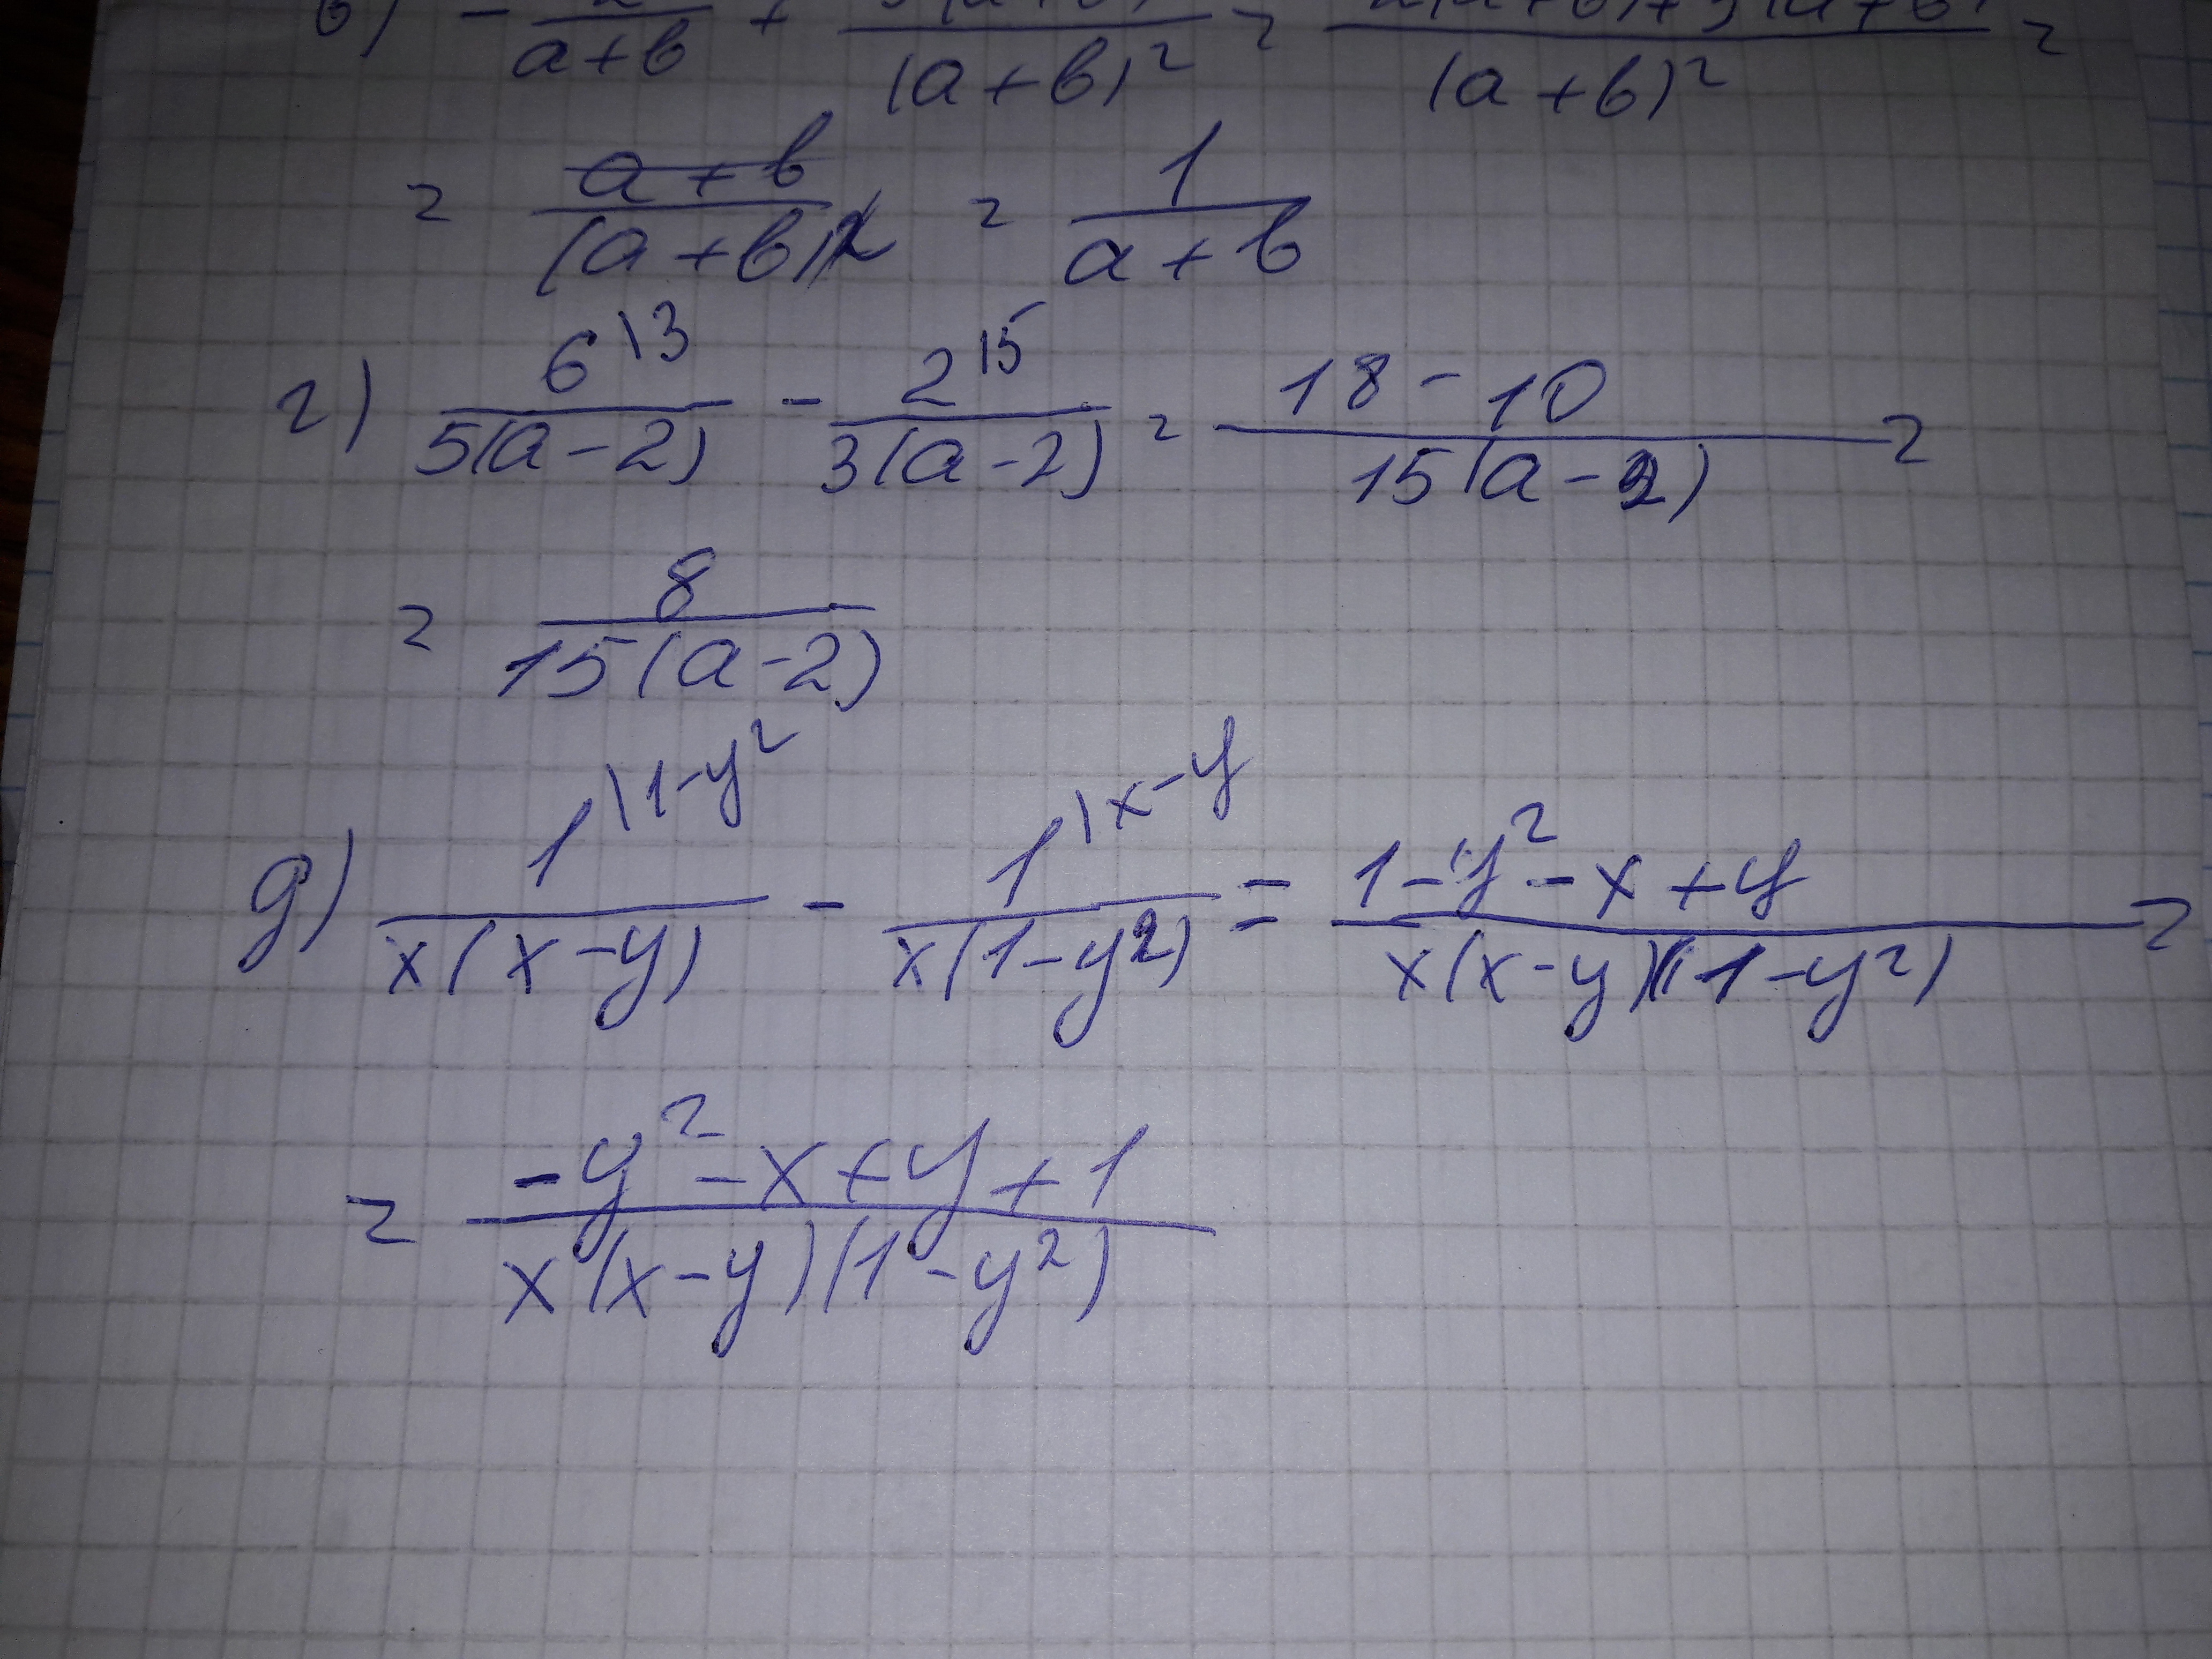 в) - 2/(a+b) + 3(a+b)/(a+b)² = (a+b)²  =
= (a+b)/(a+b)² = 1/(a+b)
г) 6\3/5(a-2) - 2\5/3(a-2) = (18-10)/15(a-2) =
= 8/15(a-2)
д) 1\1-y²/x(x-y) - 1\x-y/x(1-y²) = (1-y²-x+y)/x(x-y)(1-y²) =
= (-y²-x+y+1)/x(x-y)(1-y²)